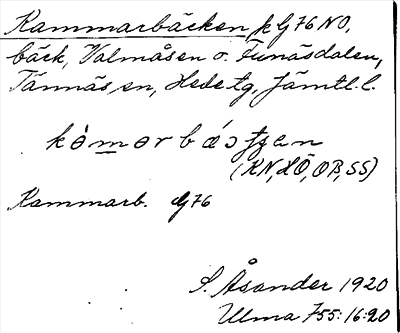 Kammarbäcken, k G76 NO,
bäck, Valmåsen o. Funäsdalen,
Tännäs, sn, Hede tg, Jämtl. l.
(KN, LÖ, OB, SS)
Kammarb. G76
S. Åsander 1920
Ulma 755:16:20